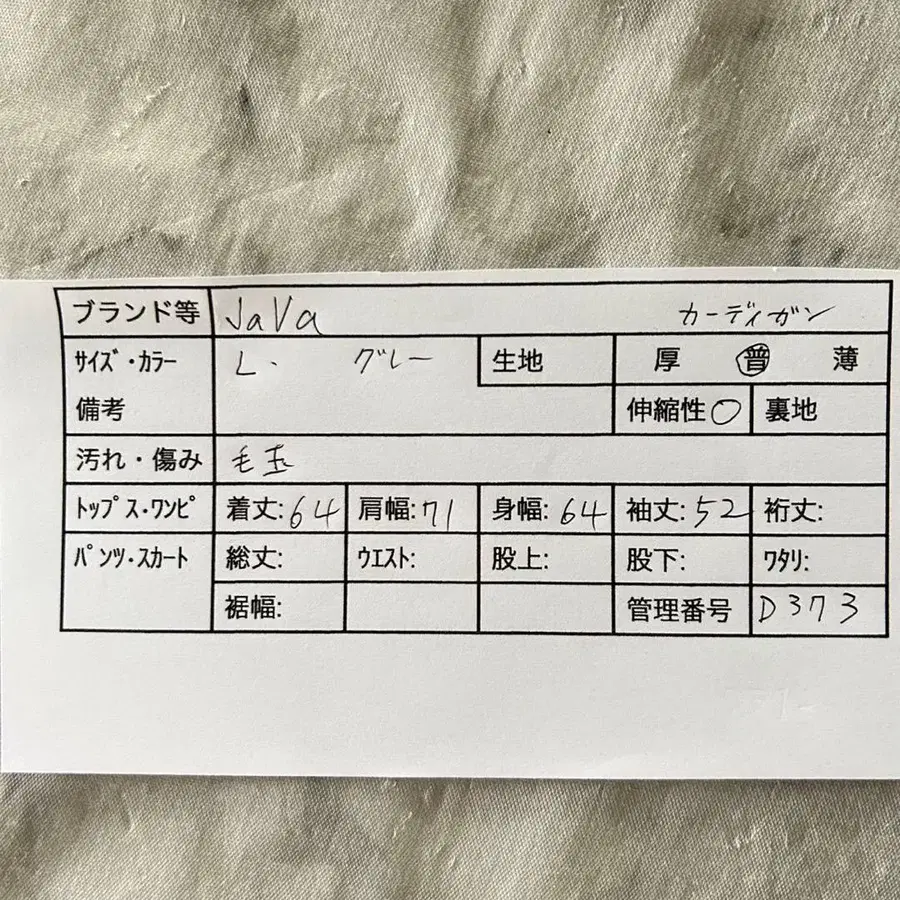 ブランド等 JaVa カーディガン
サイズ・カラー L. グレー 生地 厚 普 薄
備考 伸縮性○ 裏地
汚れ・傷み 毛玉
トップス・ワンピ 着丈:64 肩幅:71 身幅:64 袖丈:52 裄丈:
パンツ・スカート 総丈: ウエスト: 股上: 股下: ワタリ:
裾幅: 管理番号 D373